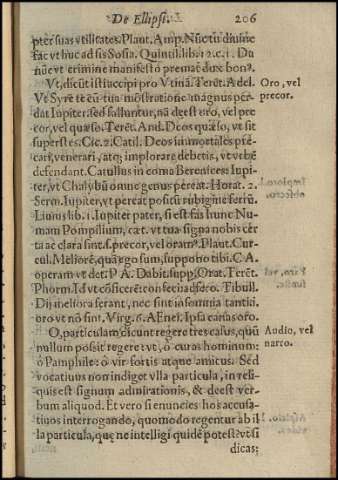 De Ellipsi. 206
pter suas vtilitates. Plaut. Amp. Nũc tu diuine
fac vt huc adsis Sosia. Quintil. lib. 12. c. 1. Da
nũc vt crimine manifesto premat̃ dux bonꝰ.
Vt, dicũt istì accipi pro Vtinã. Terẽt. Adel.
Vt Syre te cũ tua mõstratione magnus per-
dat Iupiter. sed falluntur, nã deest oro, vel pre
cor, vel quæso. Terẽt. And. Deos quæso, vt sit
superstes. Cic. 2. Catil. Deos immortales pre-
cari, venerari, atq; implorare debetis, vt vrbẽ
defendant. Catullus in coma Berenices Iupi-
ter, vt Chalybũ omne genus pereat. Horat. 2.
Serm. Iupiter, vt pereat positũ rubigine ferrũ.
Liuius lib. 1. Iupiter pater, si est fas hunc Nu-
mam Pompilium, cæt. vt tua signa nobis cer
ta ac clara sint. s. precor, vel oramꝰ. Plaut. Cur-
cul. Meliorẽ, quã ego sum, suppono tibi. C A.
operam vt det. P A. Dabit. supp. Orat. Terẽt.
Phorm. Id vt cõficerẽ: confeci adsero. Tibull.
Dij meliora ferant, nec sint insomnia tanti: i.
oro vt nõ sint. Virg. 6. AEnei. Ipsa canas oro.
O, particulam dicunt regere tres casus, quũ
nullum possit regere: vt, ô curas hominum:
ô Pamphile: ô vir fortis atque amicus. Sed
vocatiuus non indiget vlla particula, in reli-
quis est signum admirationis, & deest ver-
bum aliquod. Et vero si enuncies hos accusa-
tiuos interrogando, quomodo regentur ab il
la particula, quę ne intelligi quidẽ potest? vt si
dicas;
Oro, vel
precor.
Audio, vel
narro.